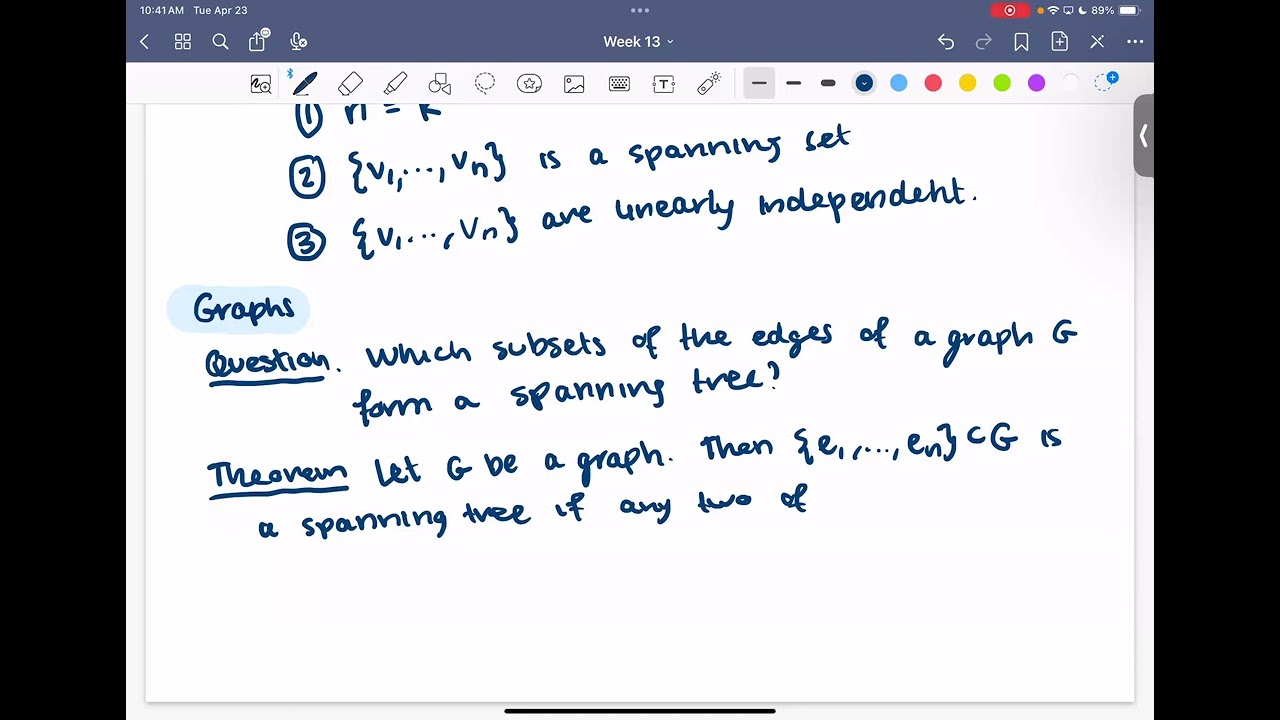 10:41 AM Tue Apr 23
89%
Week 13
① n = k
② {v₁,..., vₙ} is a spanning set
③ {v₁..., vₙ} are linearly independent.
Graphs
Question. Which subsets of the edges of a graph G
form a spanning tree?
Theorem Let G be a graph. Then {e₁,..., eₙ} ⊂ G is
a spanning tree if any two of